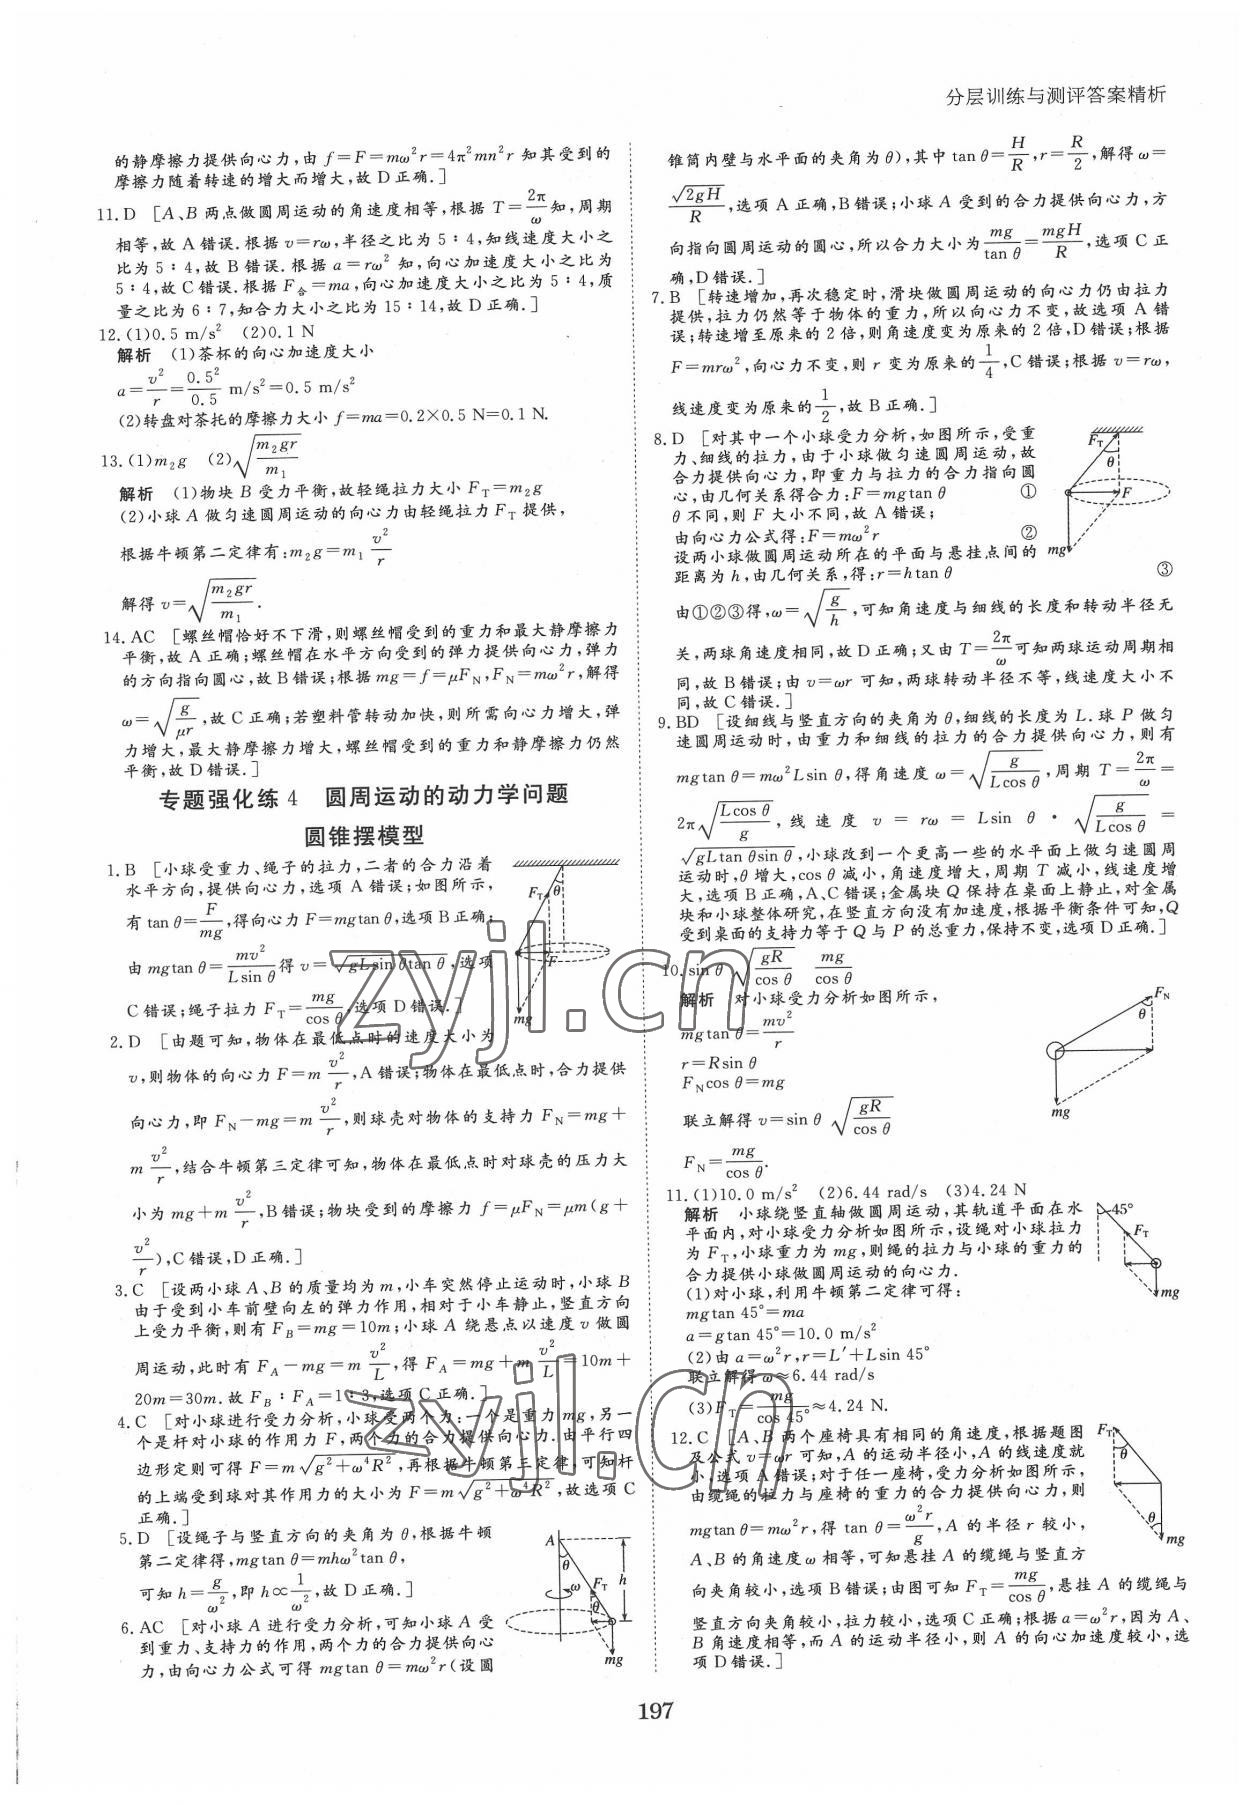 分层训练与测评答案精析
的静摩擦力提供向心力,由 f=F=mω²r=4π²mn²r 知其受到的
摩擦力随着转速的增大而增大,故 D 正确.]
11.D [A、B 两点做圆周运动的角速度相等,根据 T=2π/ω知,周期
相等,故 A 错误.根据 v=rω,半径之比为 5∶4,知线速度大小之
比为 5∶4,故 B 错误.根据 a=rω² 知,向心加速度大小之比为
5∶4,故 C 错误.根据 F合=ma,向心加速度大小之比为 5∶4,质
量之比为 6∶7,知合力大小之比为 15∶14,故 D 正确.]
12.(1)0.5 m/s² (2)0.1 N
解析 (1)茶杯的向心加速度大小
a=v²/r=0.5²/0.5 m/s²=0.5 m/s²
(2)转盘对茶托的摩擦力大小 f=ma=0.2×0.5 N=0.1 N.
13.(1)m₂g (2)√(m₂gr/m₁)
解析 (1)物块 B 受力平衡,故轻绳拉力大小 F_T=m₂g
(2)小球 A 做匀速圆周运动的向心力由轻绳拉力 F_T 提供,
根据牛顿第二定律有:m₂g=m₁ v²/r
解得 v=√(m₂gr/m₁).
14.AC [螺丝帽恰好不下滑,则螺丝帽受到的重力和最大静摩擦力
平衡,故 A 正确;螺丝帽在水平方向受到的弹力提供向心力,弹力
的方向指向圆心,故 B 错误;根据 mg=f=μF_N,F_N=mω²r,解得
ω=√(g/μr),故 C 正确;若塑料管转动加快,则所需向心力增大,弹
力增大,最大静摩擦力增大,螺丝帽受到的重力和静摩擦力仍然
平衡,故 D 错误.]
专题强化练 4 圆周运动的动力学问题
圆锥摆模型
1.B [小球受重力、绳子的拉力,二者的合力沿着
水平方向,提供向心力,选项 A 错误;如图所示,
有 tan θ=F/mg,得向心力 F=mgtan θ,选项 B 正确;
由 mgtan θ=mv²/Lsin θ得 v=√(gLsin θtan θ),选项
C 错误;绳子拉力 F_T=mg/cos θ,选项 D 错误.]
F_T
θ
F
mg
2.D [由题可知,物体在最低点时的速度大小为
v,则物体的向心力 F=m v²/r,A 错误;物体在最低点时,合力提供
向心力,即 F_N-mg=m v²/r,则球壳对物体的支持力 F_N=mg+
m v²/r,结合牛顿第三定律可知,物体在最低点时对球壳的压力大
小为 mg+m v²/r,B 错误;物块受到的摩擦力 f=μF_N=μm(g+
v²/r),C 错误,D 正确.]
3.C [设两小球 A、B 的质量均为 m,小车突然停止运动时,小球 B
由于受到小车前壁向左的弹力作用,相对于小车静止,竖直方向
上受力平衡,则有 F_B=mg=10m;小球 A 绕悬点以速度 v 做圆
周运动,此时有 F_A-mg=m v²/L,得 F_A=mg+m v²/L=10m+
20m=30m.故 F_B∶F_A=1∶3,选项 C 正确.]
4.C [对小球进行受力分析,小球受两个力:一个是重力 mg,另一
个是杆对小球的作用力 F,两个力的合力提供向心力.由平行四
边形定则可得 F=m√(g²+ω⁴R²),再根据牛顿第三定律,可知杆
的上端受到球对其作用力的大小为 F=m√(g²+ω⁴R²),故选项 C
正确.]
5.D [设绳子与竖直方向的夹角为 θ,根据牛顿
第二定律得,mgtan θ=mhω²tan θ,
可知 h=g/ω²,即 h∝1/ω²,故 D 正确.]
A
θ
ω
F_T
h
θ
mg
6.AC [对小球 A 进行受力分析,可知小球 A 受
到重力、支持力的作用,两个力的合力提供向心
力,由向心力公式可得 mgtan θ=mω²r(设圆
锥筒内壁与水平面的夹角为θ),其中 tan θ=H/R,r=R/2,解得 ω=
√(2gH)/R,选项 A 正确,B 错误;小球 A 受到的合力提供向心力,方
向指向圆周运动的圆心,所以合力大小为mg/tan θ=mgH/R,选项 C 正
确,D 错误.]
7.B [转速增加,再次稳定时,滑块做圆周运动的向心力仍由拉力
提供,拉力仍然等于物体的重力,所以向心力不变,故选项 A 错
误;转速增至原来的 2 倍,则角速度变为原来的 2 倍,D 错误;根据
F=mrω²,向心力不变,则 r 变为原来的1/4,C 错误;根据 v=rω,
线速度变为原来的1/2,故 B 正确.]
8.D [对其中一个小球受力分析,如图所示,受重
力、细线的拉力,由于小球做匀速圆周运动,故
合力提供向心力,即重力与拉力的合力指向圆
心,由几何关系得合力:F=mgtan θ ①
θ 不同,则 F 大小不同,故 A 错误;
由向心力公式得:F=mω²r ②
设两小球做圆周运动所在的平面与悬挂点间的
距离为 h,由几何关系,得:r=htan θ ③
F_T
θ
F
mg
由①②③得,ω=√(g/h),可知角速度与细线的长度和转动半径无
关,两球角速度相同,故 D 正确;又由 T=2π/ω可知两球运动周期相
同,故 B 错误;由 v=ωr 可知,两球转动半径不等,线速度大小不
同,故 C 错误.]
9.BD [设细线与竖直方向的夹角为 θ,细线的长度为 L.球 P 做匀
速圆周运动时,由重力和细线的拉力的合力提供向心力,则有
mgtan θ=mω²Lsin θ,得角速度 ω=√(g/Lcos θ),周期 T=2π/ω=
2π√(Lcos θ/g),线速度 v=rω=Lsin θ·√(g/Lcos θ)=
√(gLtan θsin θ),小球改到一个更高一些的水平面上做匀速圆周
运动时,θ 增大,cos θ 减小,角速度增大,周期 T 减小,线速度增
大,选项 B 正确,A、C 错误;金属块 Q 保持在桌面上静止,对金属
块和小球整体研究,在竖直方向没有加速度,根据平衡条件可知,Q
受到桌面的支持力等于 Q 与 P 的总重力,保持不变,选项 D 正确.]
10.sin θ √(gR/cos θ) mg/cos θ
解析 对小球受力分析如图所示,
mgtan θ=mv²/r
r=Rsin θ
F_Ncos θ=mg
联立解得 v=sin θ √(gR/cos θ)
F_N=mg/cos θ.
F_N
mg
11.(1)10.0 m/s² (2)6.44 rad/s (3)4.24 N
解析 小球绕竖直轴做圆周运动,其轨道平面在水
平面内,对小球受力分析如图所示,设绳对小球拉力
为 F_T,小球重力为 mg,则绳的拉力与小球的重力的
合力提供小球做圆周运动的向心力.
(1)对小球,利用牛顿第二定律可得:
mgtan 45°=ma
a=gtan 45°=10.0 m/s²
(2)由 a=ω²r,r=L′+Lsin 45°
联立解得 ω≈6.44 rad/s
(3)F_T=mg/cos 45°≈4.24 N.
45°
F_T
mg
12.C [A、B 两个座椅具有相同的角速度,根据题图
及公式 v=ωr 可知,A 的运动半径小,A 的线速度就
小,选项 A 错误;对于任一座椅,受力分析如图所示,
由缆绳的拉力与座椅的重力的合力提供向心力,则
mgtan θ=mω²r,得 tan θ=ω²r/g,A 的半径 r 较小,
A、B 的角速度 ω 相等,可知悬挂 A 的缆绳与竖直方
向夹角较小,选项 B 错误;由图可知 F_T=mg/cos θ,悬挂 A 的缆绳与
竖直方向夹角较小,拉力较小,选项 C 正确;根据 a=ω²r,因为 A、
B 角速度相等,而 A 的运动半径小,则 A 的向心加速度较小,选
项 D 错误.]
F_T
θ
θ
mg
197
zyjl.cn
zyjl.cn